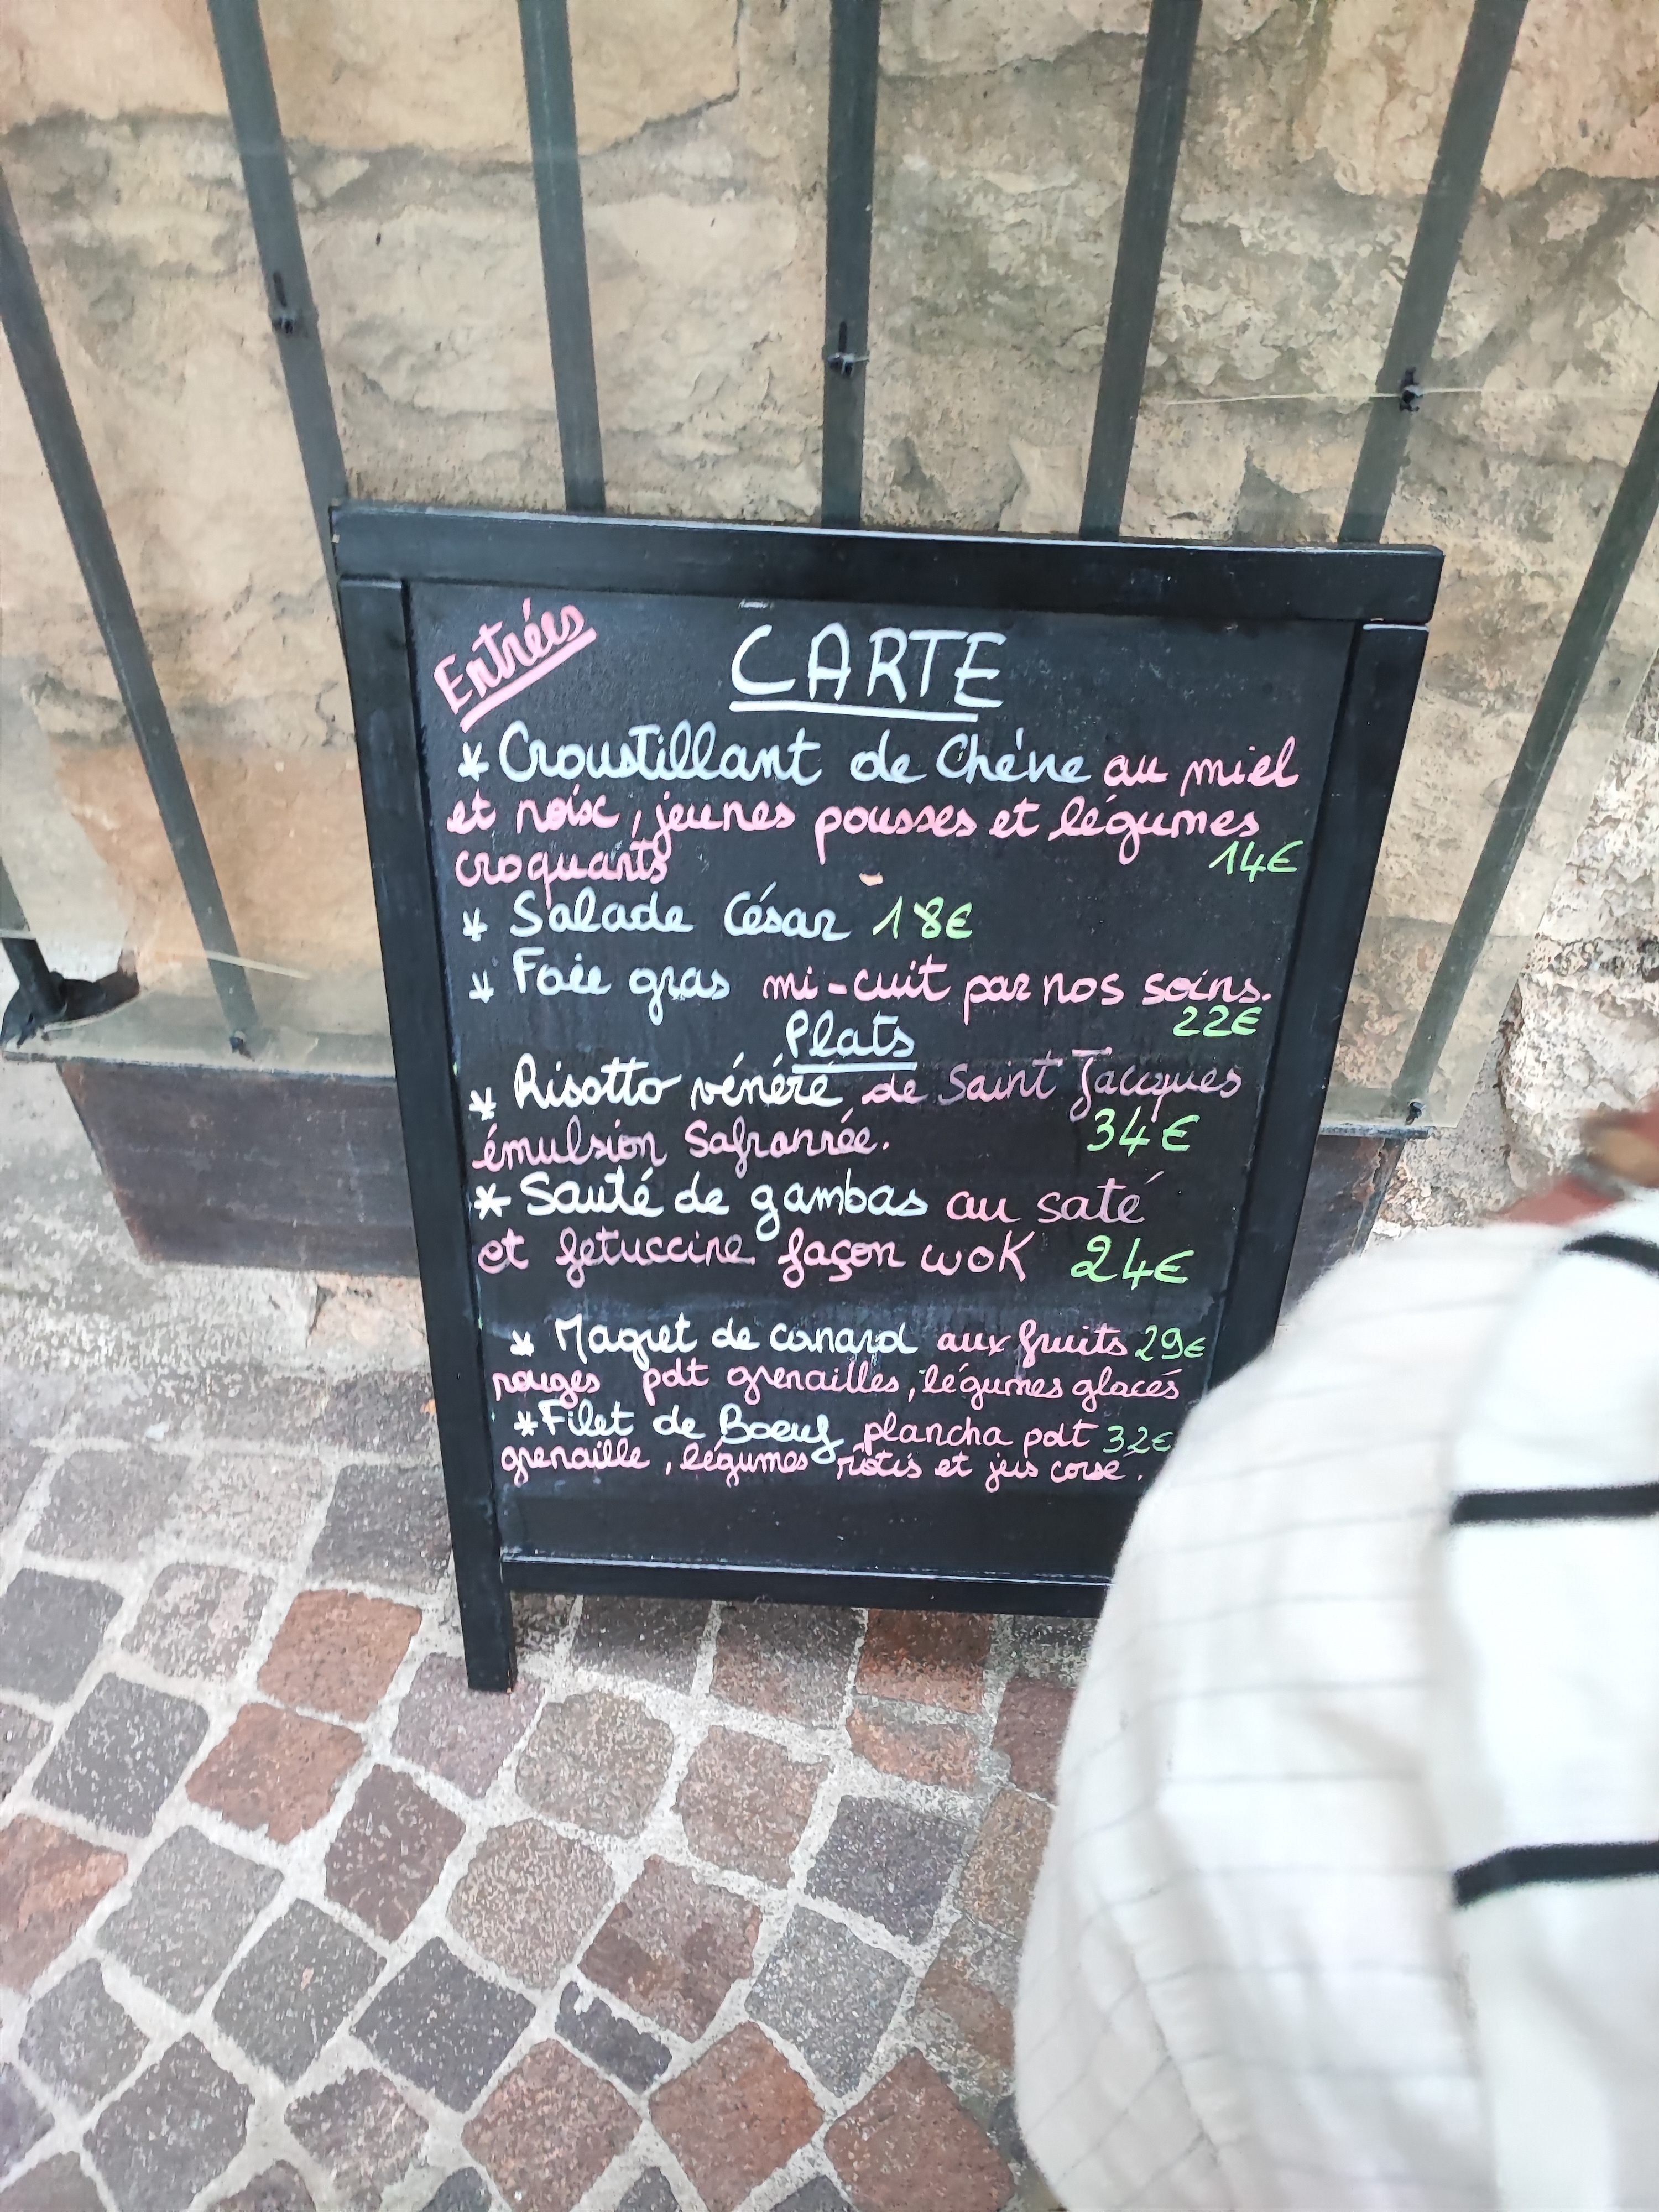 Entrées
CARTE
* Croustillant de Chèvre au miel
et noix, jeunes pousses et légumes
croquants 14€
* Salade César 18€
* Foie gras mi-cuit par nos soins.
22€
Plats
* Risotto vénéré de Saint Jacques
émulsion Safranée. 34€
* Sauté de gambas au saté
et fetuccine façon wok 24€
* Magret de canard aux fruits 29€
rouges pdt grenailles, légumes glacés
* Filet de Boeuf plancha pdt 32€
grenaille, légumes rôtis et jus corsé.